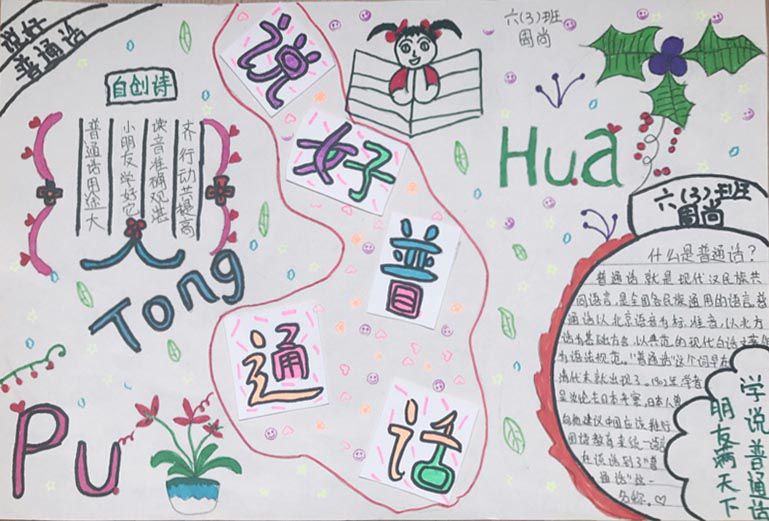 说好
普通话
自创诗
普通话用途大
小朋友学好它
读音准确观
齐行动共提高
说
好
普
通
话
六(3)班
周尚
Hua
Tong
Pu
六(3)班
周尚
什么是普通话？
普通话就是现代汉民族共
同语言,是全国各民族通用的语言.普
通话以北京语音为标准音,以北方
话为基础方言,以典范的现代白话文著作
为语法规范。"普通话"这个词早在
清代末就出现了。1902年,学者
吴汝纶去日本考察,日本人
向他建议中国应该推行
国语教育来统一语言
在谈话到了"普
通话"这一
名称。
学说普通话
朋友满天下